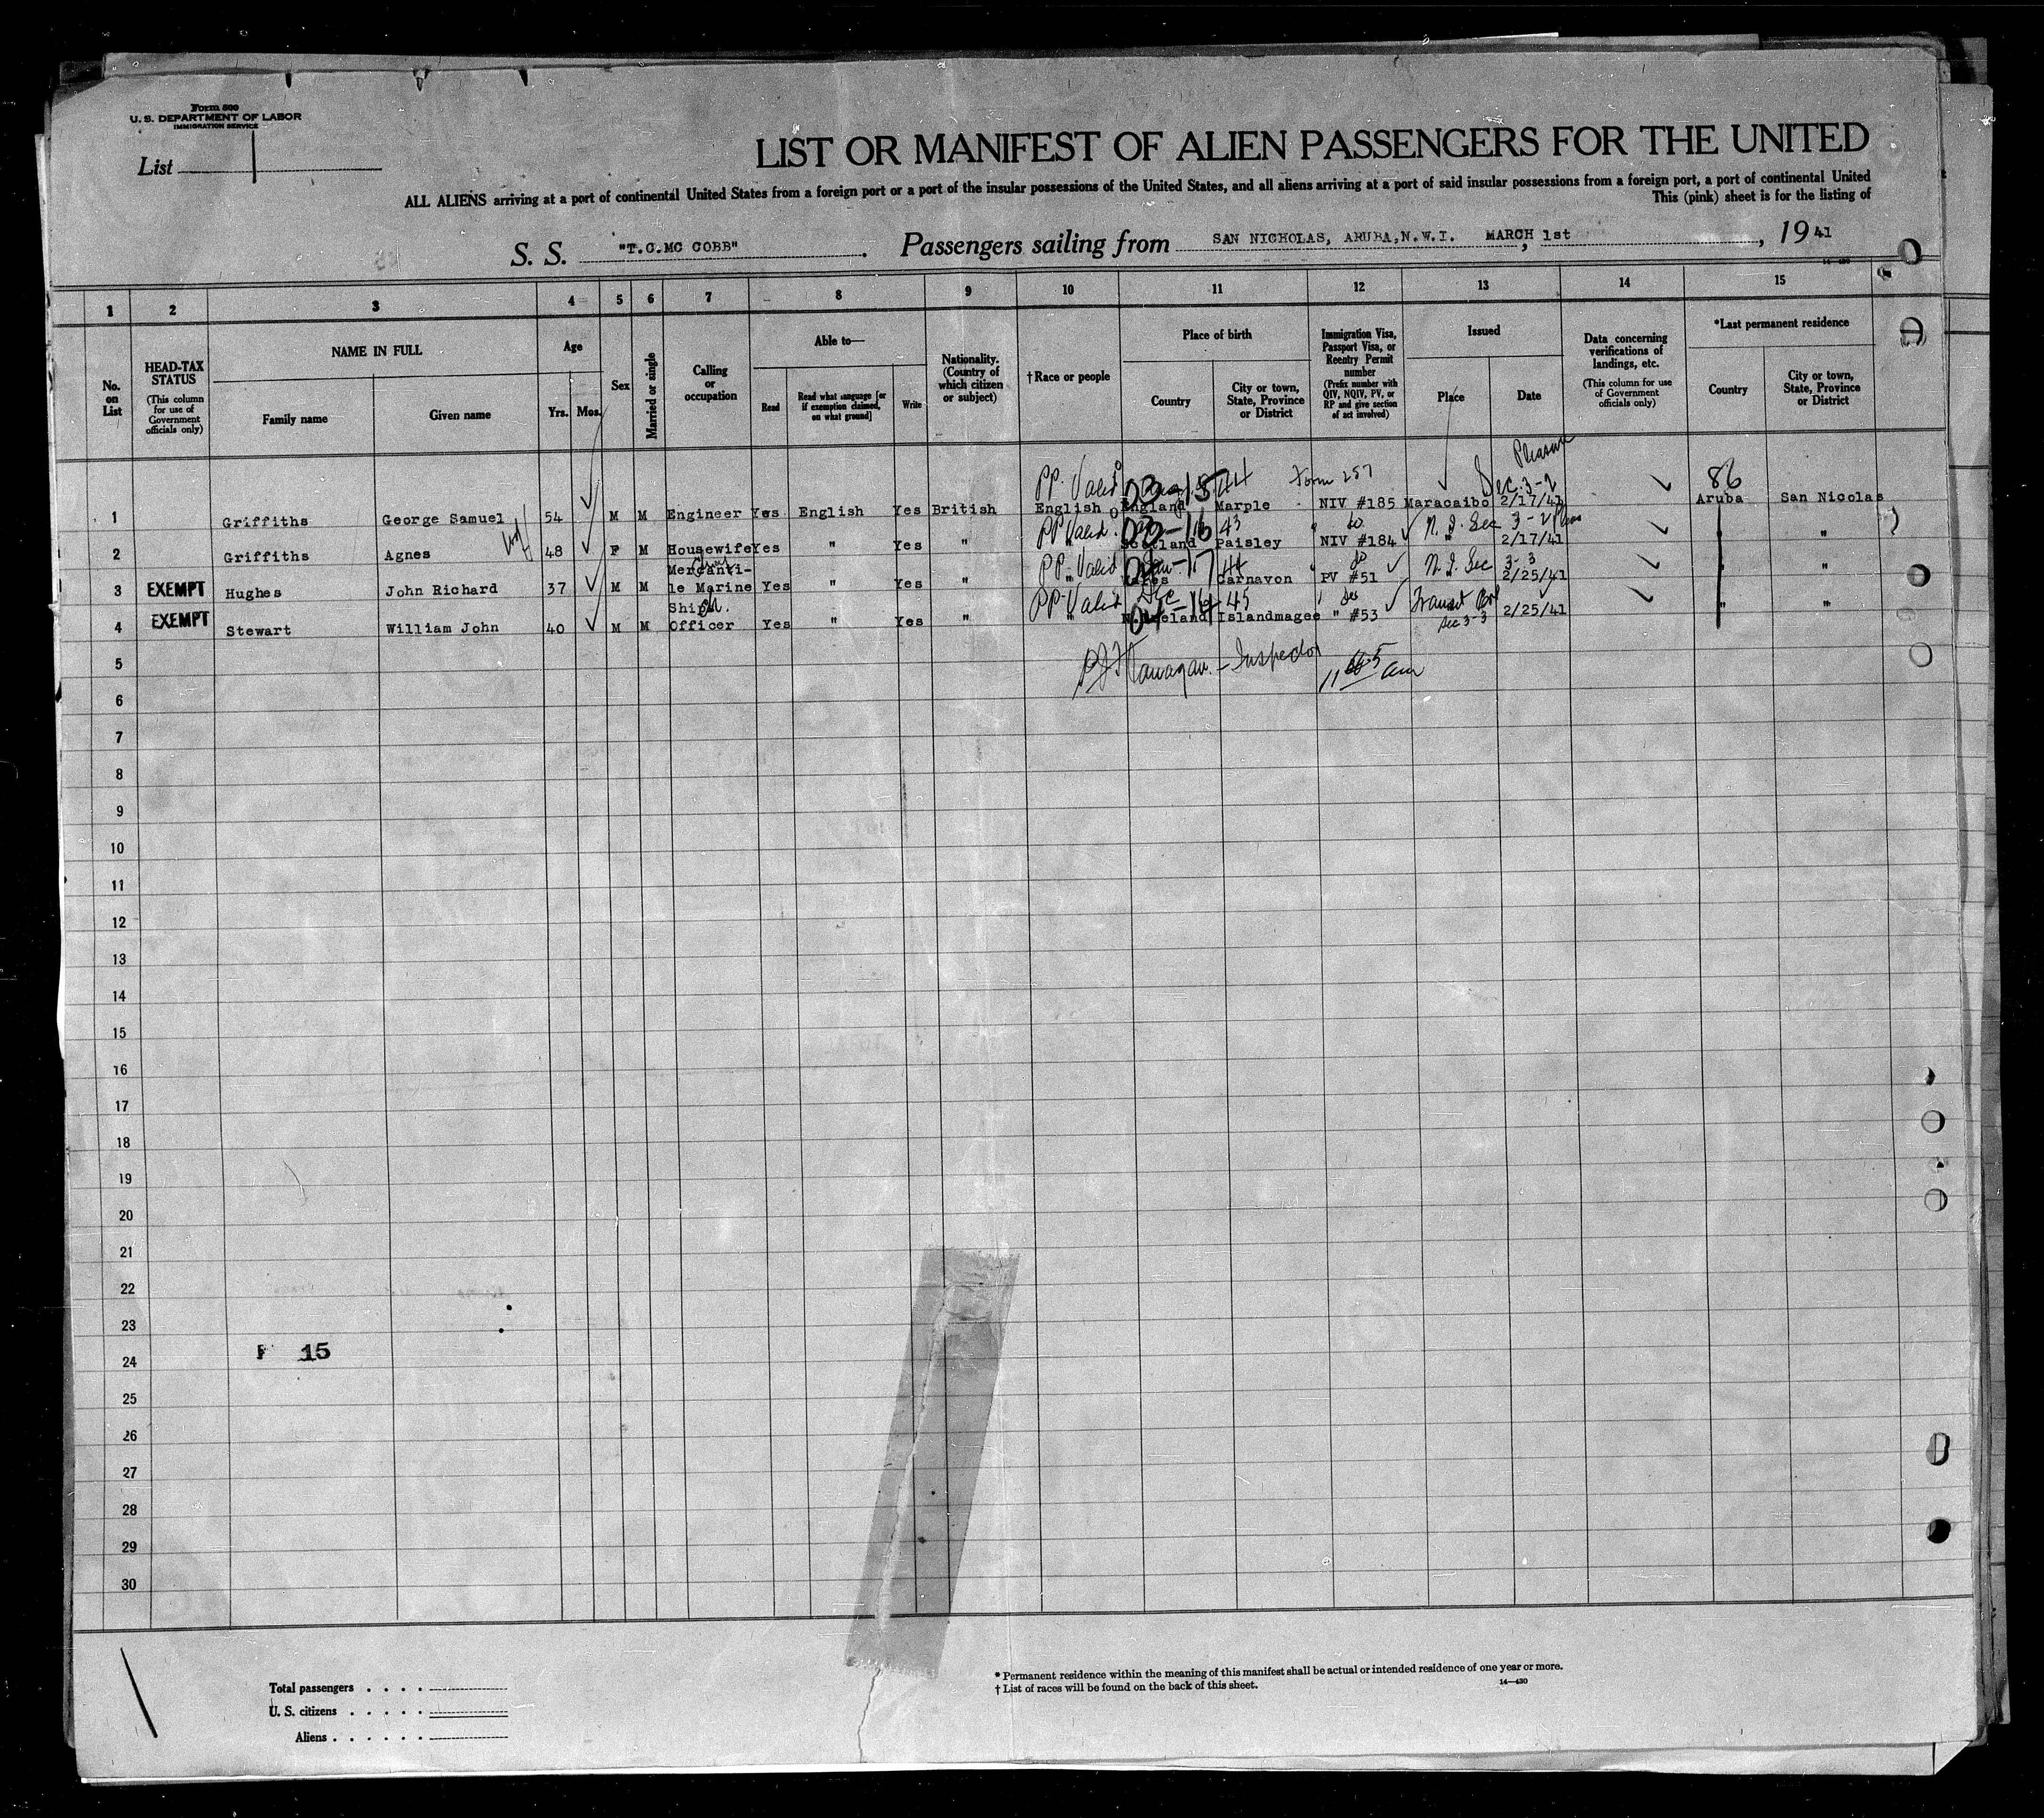 Form 500
U. S. DEPARTMENT OF LABOR
IMMIGRATION SERVICE
List 1
LIST OR MANIFEST OF ALIEN PASSENGERS FOR THE UNITED
ALL ALIENS arriving at a port of continental United States from a foreign port or a port of the insular possessions of the United States, and all aliens arriving at a port of said insular possessions from a foreign port, a port of continental United
This (pink) sheet is for the listing of
S. S. "T.C.MC COBB". Passengers sailing from SAN NICHOLAS, ARUBA,N.W.I. MARCH 1st, 1941
14—430
1 2 3 4 5 6 7 8 9 10 11 12 13 14 15
No. on List
HEAD-TAX STATUS
(This column for use of Government officials only)
NAME IN FULL
Family name
Given name
Age
Yrs.
Mos.
Sex
Married or single
Calling or occupation
Able to—
Read
Read what language [or if exemption claimed, on what ground]
Write
Nationality. (Country of which citizen or subject)
†Race or people
Place of birth
Country
City or town, State, Province or District
Immigration Visa, Passport Visa, or Reentry Permit number
(Prefix number with QIV, NQIV, PV, or RP and give section of act involved)
Issued
Place
Date
Data concerning verifications of landings, etc.
(This column for use of Government officials only)
*Last permanent residence
Country
City or town, State, Province or District
Pleasure
PP. Valid 03-15 44 Form 257 Sec. 3-2 86
1 Griffiths George Samuel 54 M M Engineer Yes English Yes British English England Marple NIV #185 Maracaibo 2/17/41 Aruba San Nicolas
PP Valid 03-16 43 do N. I. Sec 3-2
2 Griffiths Agnes 48 F M Housewife Yes " Yes " " Scotland Paisley NIV #184 " 2/17/41 " "
PP. Valid 04-17 44 do N. I. Sec 3-3
3 EXEMPT Hughes John Richard 37 M M Mercanti-le Marine Yes " Yes " " Wales Carnavon PV #51 2/25/41 " "
PP. Valid Dec 04-14 45 do Transit Sec 3-3
4 EXEMPT Stewart William John 40 M M Ship Officer Yes " Yes " " N.Ireland Islandmagee " #53 2/25/41 " "
5 Flanagan - Inspector 11 05 am
6
7
8
9
10
11
12
13
14
15
16
17
18
19
20
21
22
23
24 15
25
26
27
28
29
30
* Permanent residence within the meaning of this manifest shall be actual or intended residence of one year or more.
† List of races will be found on the back of this sheet.
14—430
Total passengers . . . .
U. S. citizens . . . . .
Aliens . . . . . .